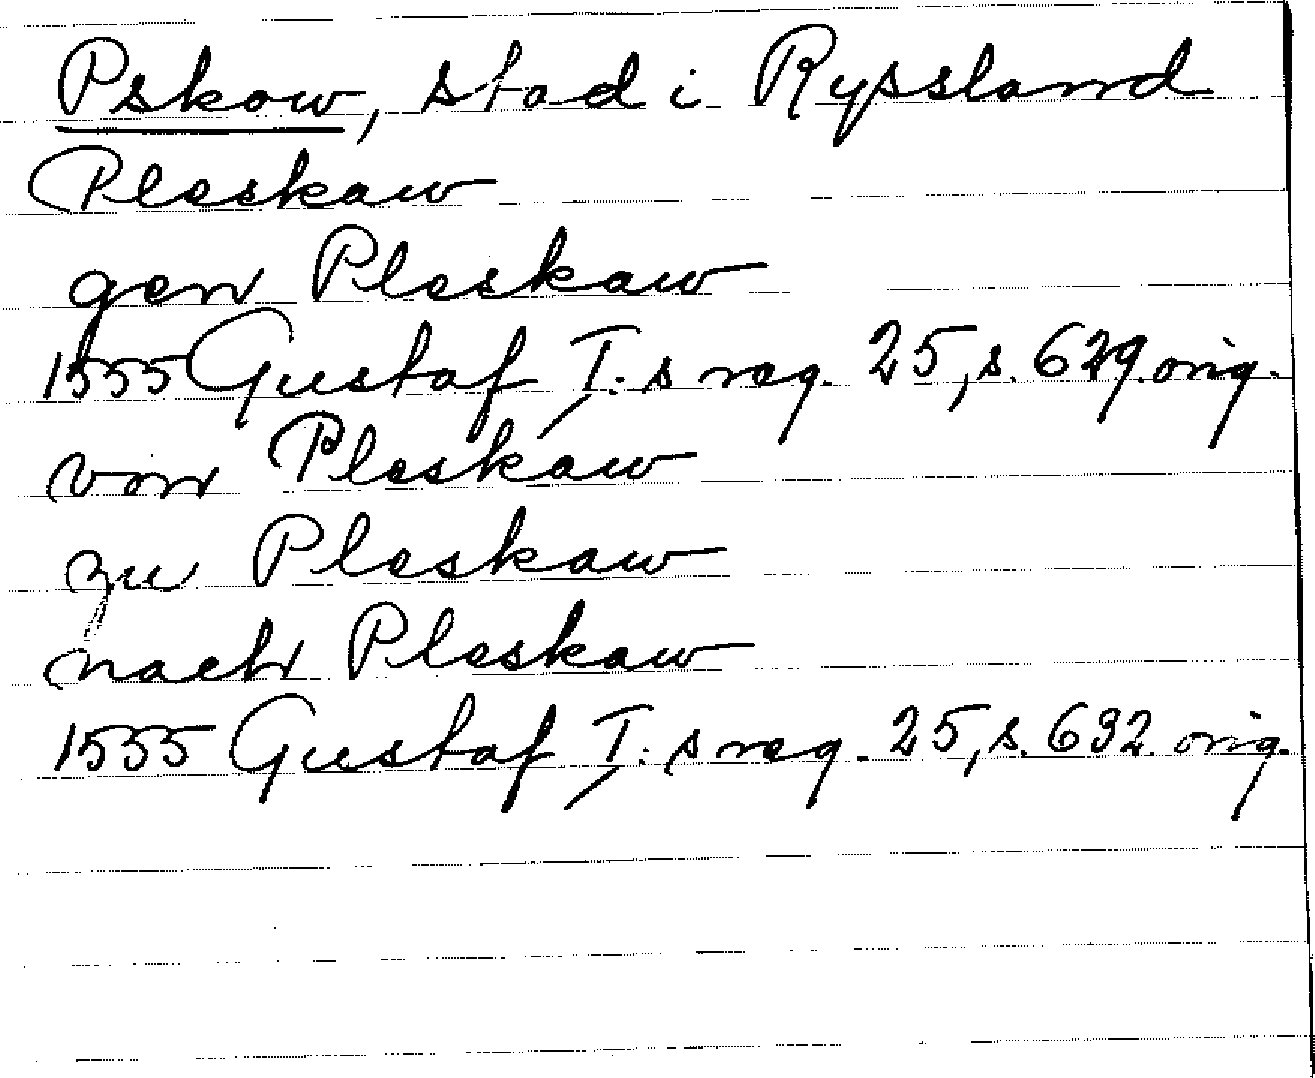 Pskow, stad i Ryssland
Pleskaw
gen Pleskaw
1555 Gustaf I:s reg. 25, s. 629. orig.
von Pleskaw
zu Pleskaw
nach Pleskaw
1555 Gustaf I:s reg. 25, s. 632. orig.